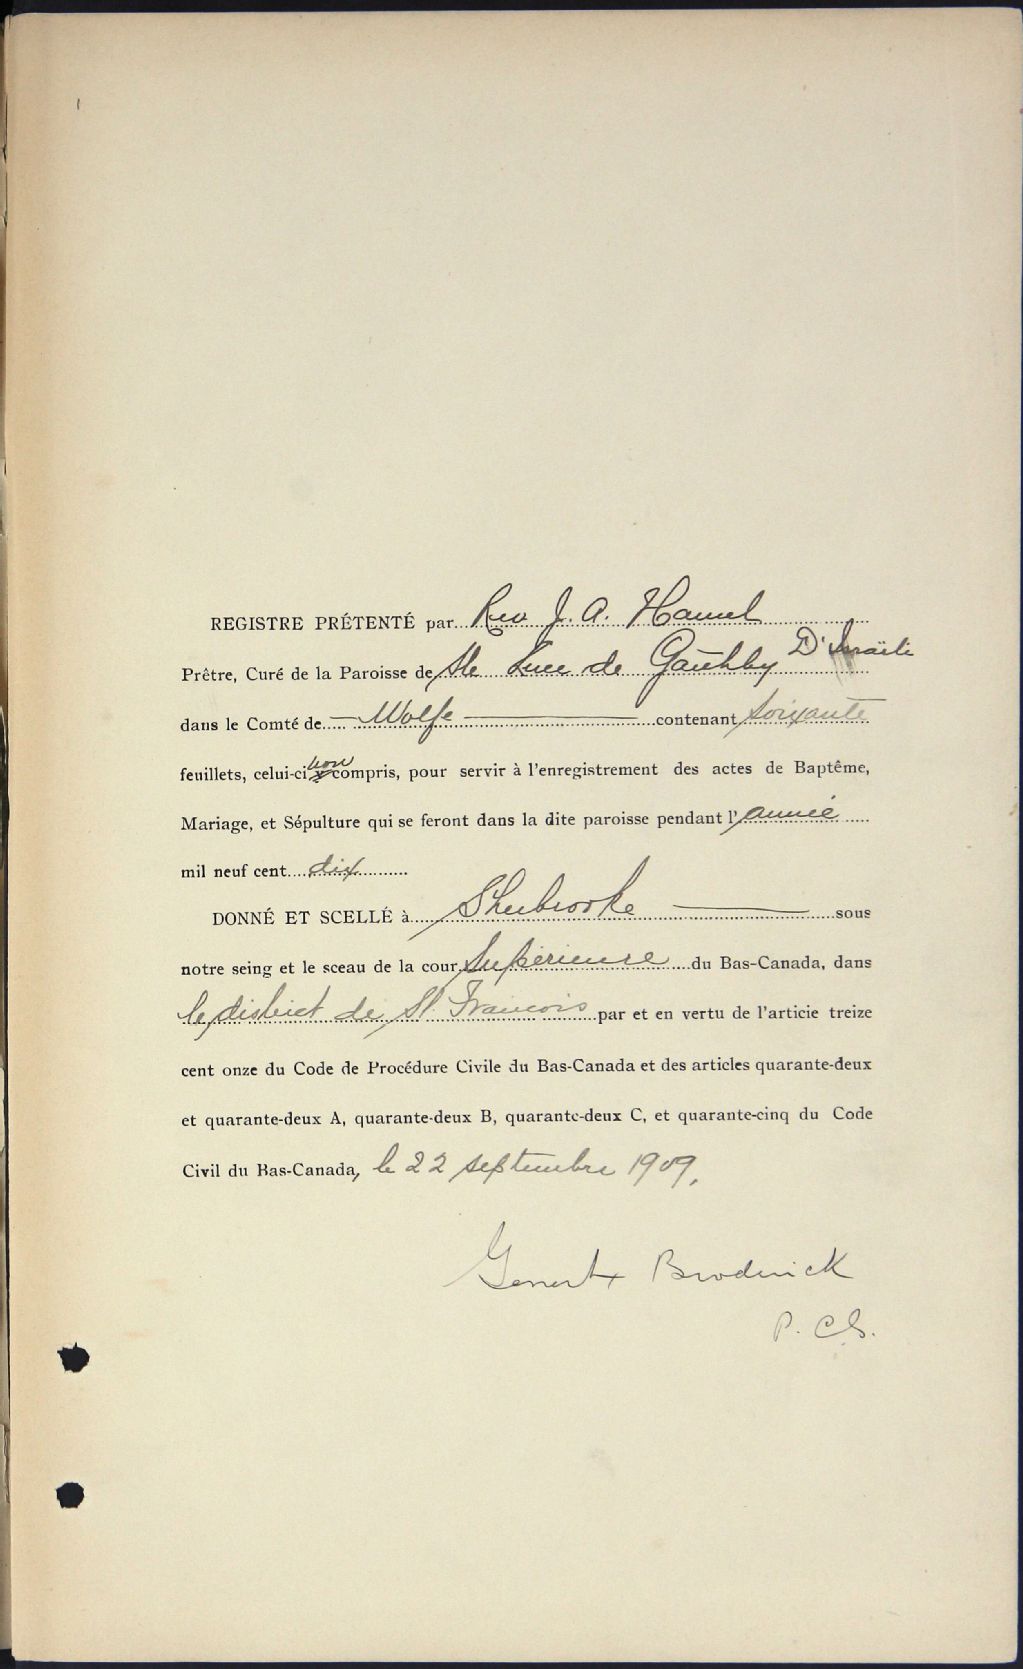 REGISTRE PRÉTENTÉ par Rev J. A. Hamel
Prêtre, Curé de la Paroisse de Ste Luce de D'Israëli
dans le Comté de — Wolfe — contenant soixante
feuillets, celui-ci non compris, pour servir à l'enregistrement des actes de Baptême,
Mariage, et Sépulture qui se feront dans la dite paroisse pendant l'année
mil neuf cent dix
DONNÉ ET SCELLÉ à Sherbrooke — sous
notre seing et le sceau de la cour Supérieure du Bas-Canada, dans
le district de St. Francois par et en vertu de l'articie treize
cent onze du Code de Procédure Civile du Bas-Canada et des articles quarante-deux
et quarante-deux A, quarante-deux B, quarante-deux C, et quarante-cinq du Code
Civil du Bas-Canada, le 22 septembre 1909.
Broderick
P. C. S.